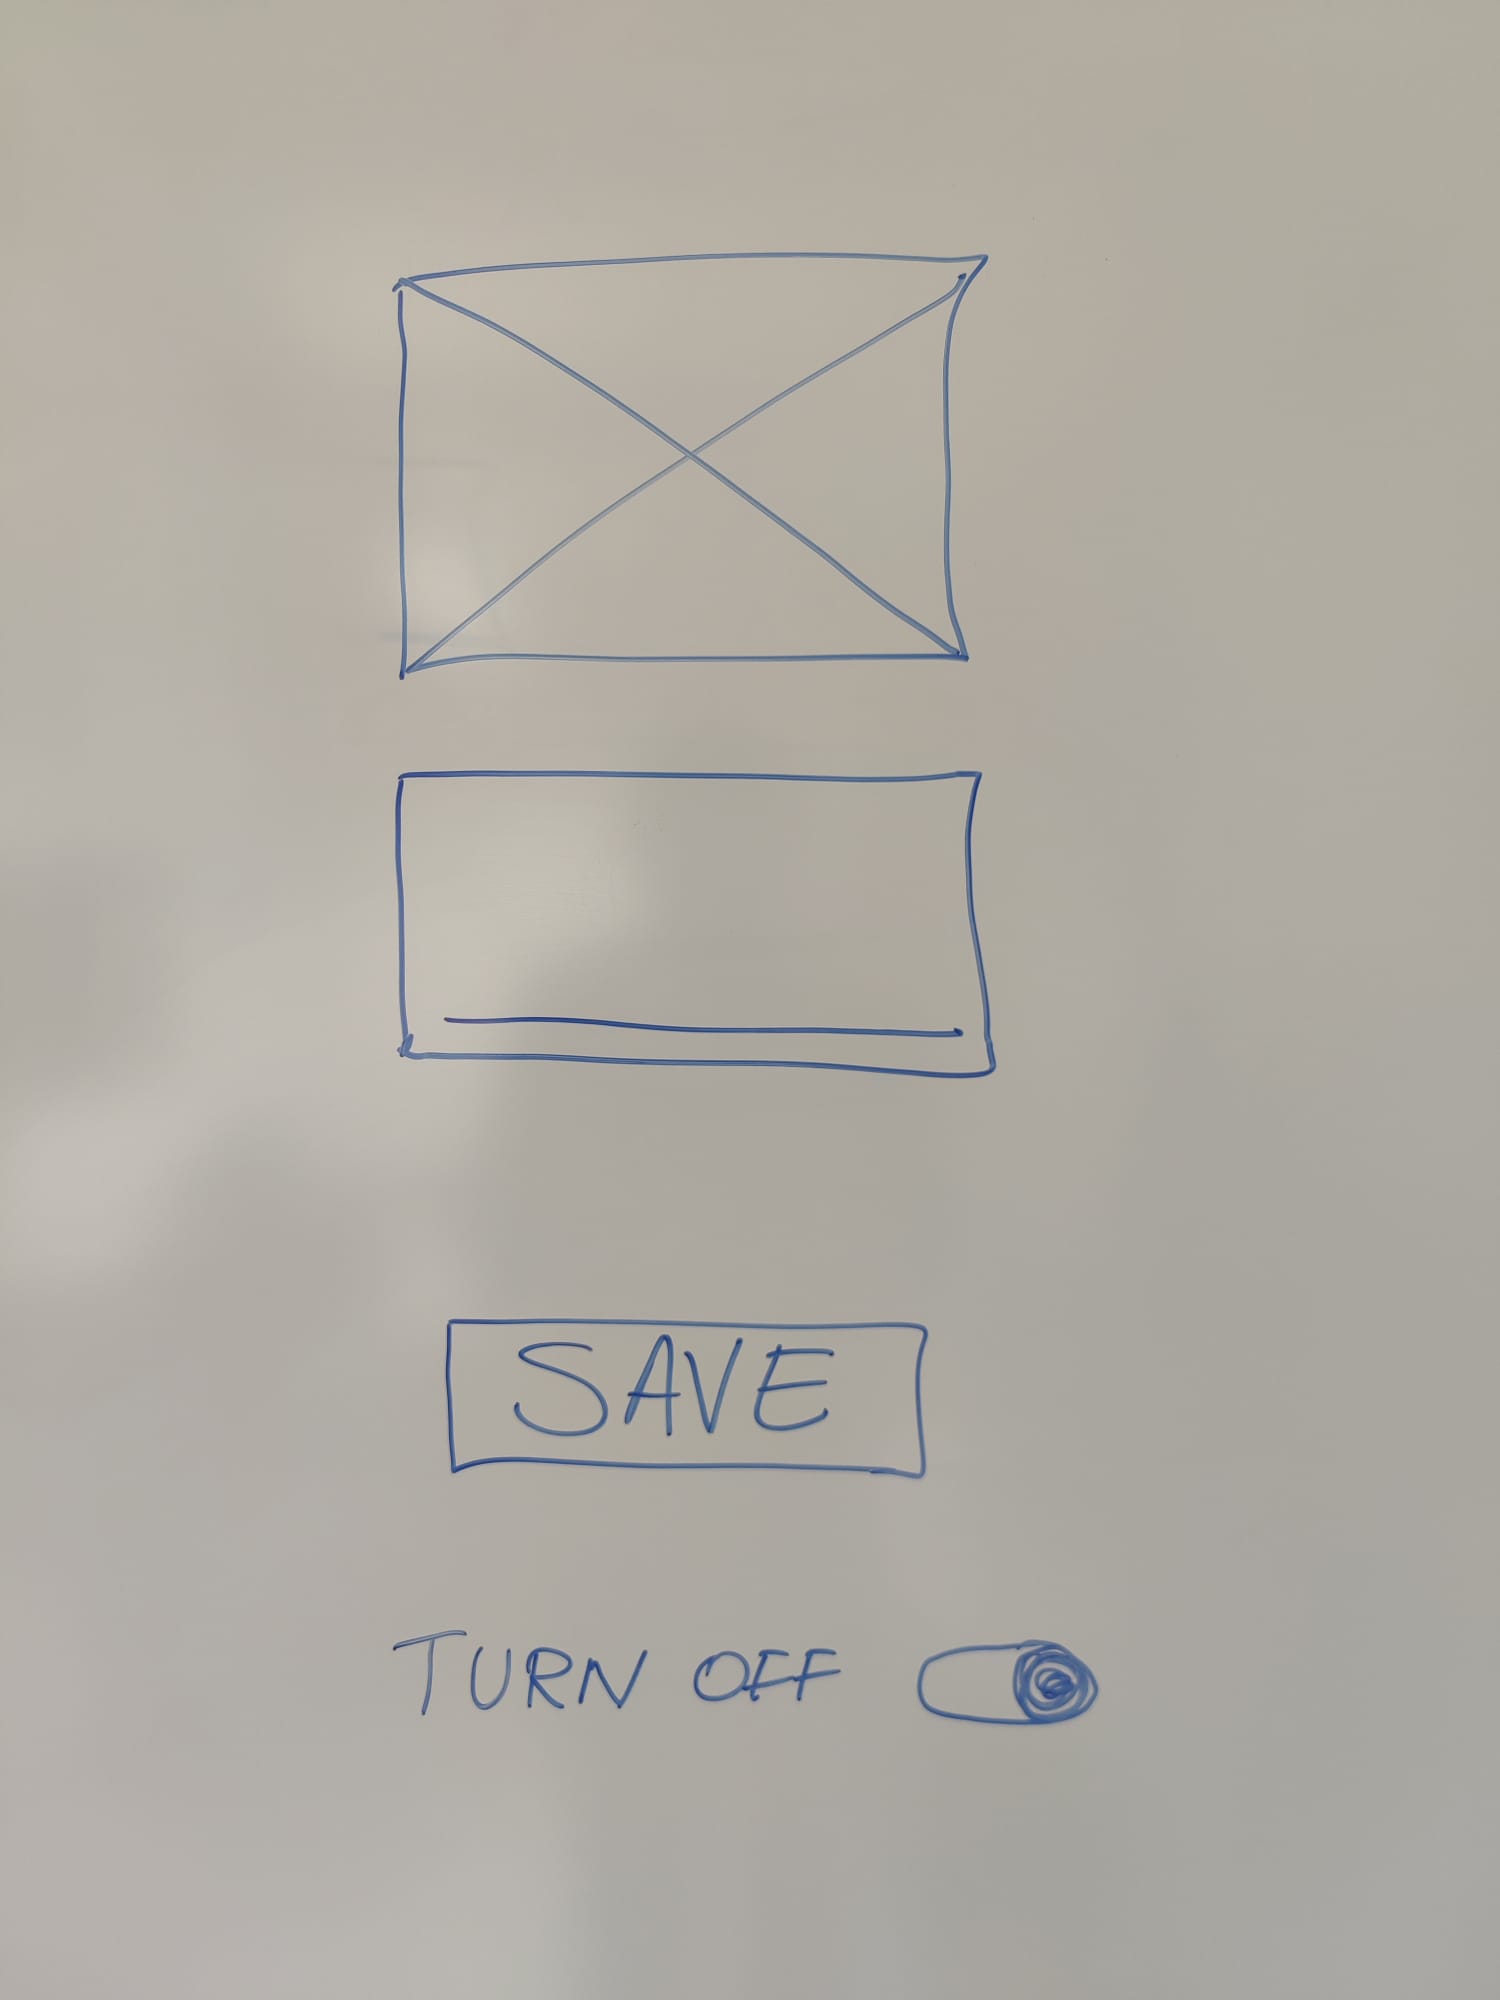 SAVE
TURN OFF